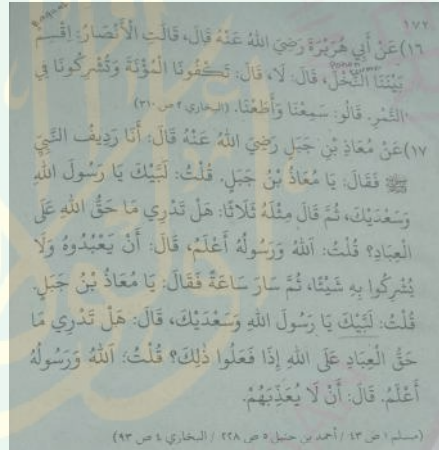 ١٧٢
١٦) عَنْ أَبِي هُرَيْرَةَ رَضِيَ اللهُ عَنْهُ قَالَ، قَالَتِ الْأَنْصَارُ: اِقْسِمْ
بَيْنَنَا النَّخْلَ، قَالَ: لَا، قَالَ: تَكْفُونَا الْمُؤْنَةَ وَتُشْرِكُونَا فِي
التَّمْرِ. قَالُو: سَمِعْنَا وَأَطَعْنَا. (البخاري ٢ ص ٢١٠)
١٧) عَنْ مُعَاذِ بْنِ جَبَلٍ رَضِيَ اللهُ عَنْهُ قَالَ: أَنَا رَدِيفُ النَّبِيِّ
ﷺ فَقَالَ: يَا مُعَاذُ بْنُ جَبَلٍ. قُلْتُ: لَبَّيْكَ يَا رَسُولَ اللهِ
وَسَعْدَيْكَ، ثُمَّ قَالَ مِثْلَهُ ثَلَاثًا: هَلْ تَدْرِي مَا حَقُّ اللهِ عَلَى
الْعِبَادِ؟ قُلْتُ: اَللهُ وَرَسُولُهُ أَعْلَمُ، قَالَ: أَنْ يَعْبُدُوهُ وَلَا
يُشْرِكُوا بِهِ شَيْئًا، ثُمَّ سَارَ سَاعَةً فَقَالَ: يَا مُعَاذُ بْنُ جَبَلٍ.
قُلْتُ: لَبَّيْكَ يَا رَسُولَ اللهِ وَسَعْدَيْكَ، قَالَ: هَلْ تَدْرِي مَا
حَقُّ الْعِبَادِ عَلَى اللهِ إِذَا فَعَلُوا ذٰلِكَ؟ قُلْتُ: اَللهُ وَرَسُولُهُ
أَعْلَمُ. قَالَ: أَنْ لَا يُعَذِّبَهُمْ.
(مسلم ١ ص ٤٣ / أحمد بن حنبل ٥ ص ٢٢٨ / البخاري ٤ ص ٩٣)